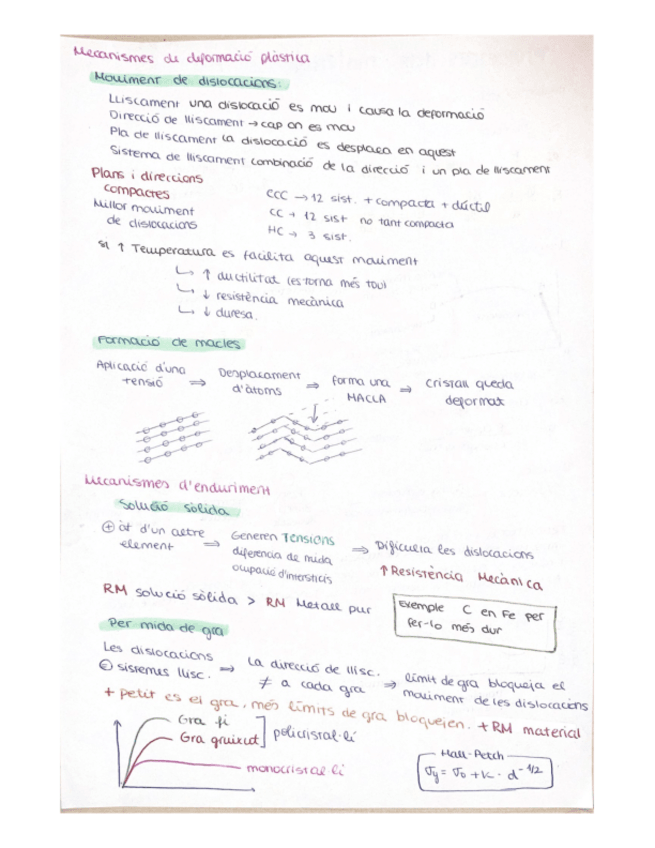 Mecanismes de deformació plàstica
Moviment de dislocacions:
Lliscament una dislocació es mou i causa la deformació
Direcció de lliscament → cap on es mou
Pla de lliscament la dislocació es desplaça en aquest
Sistema de lliscament combinació de la direcció i un pla de lliscament
Plans i direccions
compactes
Millor moviment
de dislocacions
CCC → 12 sist. + compacta + dúctil
CC → 12 sist no tant compacta
HC → 3 sist.
Si ↑ Temperatura es facilita aquest moviment
↳ ↑ ductilitat (es torna més tou)
↳ ↓ resistència mecànica
↳ ↓ duresa.
Formació de macles
Aplicació d'una
tensió ⇒
Desplaçament
d'àtoms ⇒
forma una
MACLA ⇒
cristall queda
deformat
Mecanismes d'enduriment
Solució sòlida
⊕ àt d'un altre
element ⇒
Generen TENSIONS
diferencia de mida
ocupació d'intersticis
⇒ Dificulta les dislocacions
↑ Resistència Mecànica
RM solució sòlida > RM Metall pur
Exemple C en Fe per
fer-lo més dur
Per mida de gra
Les dislocacions
sistemes llisc. ⇒
La direcció de llisc.
≠ a cada gra ⇒
límit de gra bloqueja el
moviment de les dislocacions
+ petit es el gra, més límits de gra bloquejen. + RM material
Gra fi
Gra gruixut ] policristal·lí
monocristal·lí
Hall-Petch
σy = σo + K · d^-1/2